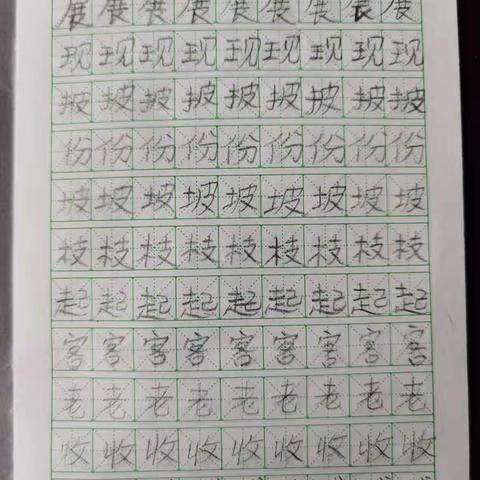 展展展展展展展展展
现现现现现现现现现
披披披披披披披披披
份份份份份份份份份
坡坡坡坡坡坡坡坡坡
枝枝枝枝枝枝枝枝枝
起起起起起起起起起
客客客客客客客客客
老老老老老老老老老
收收收收收收收收收